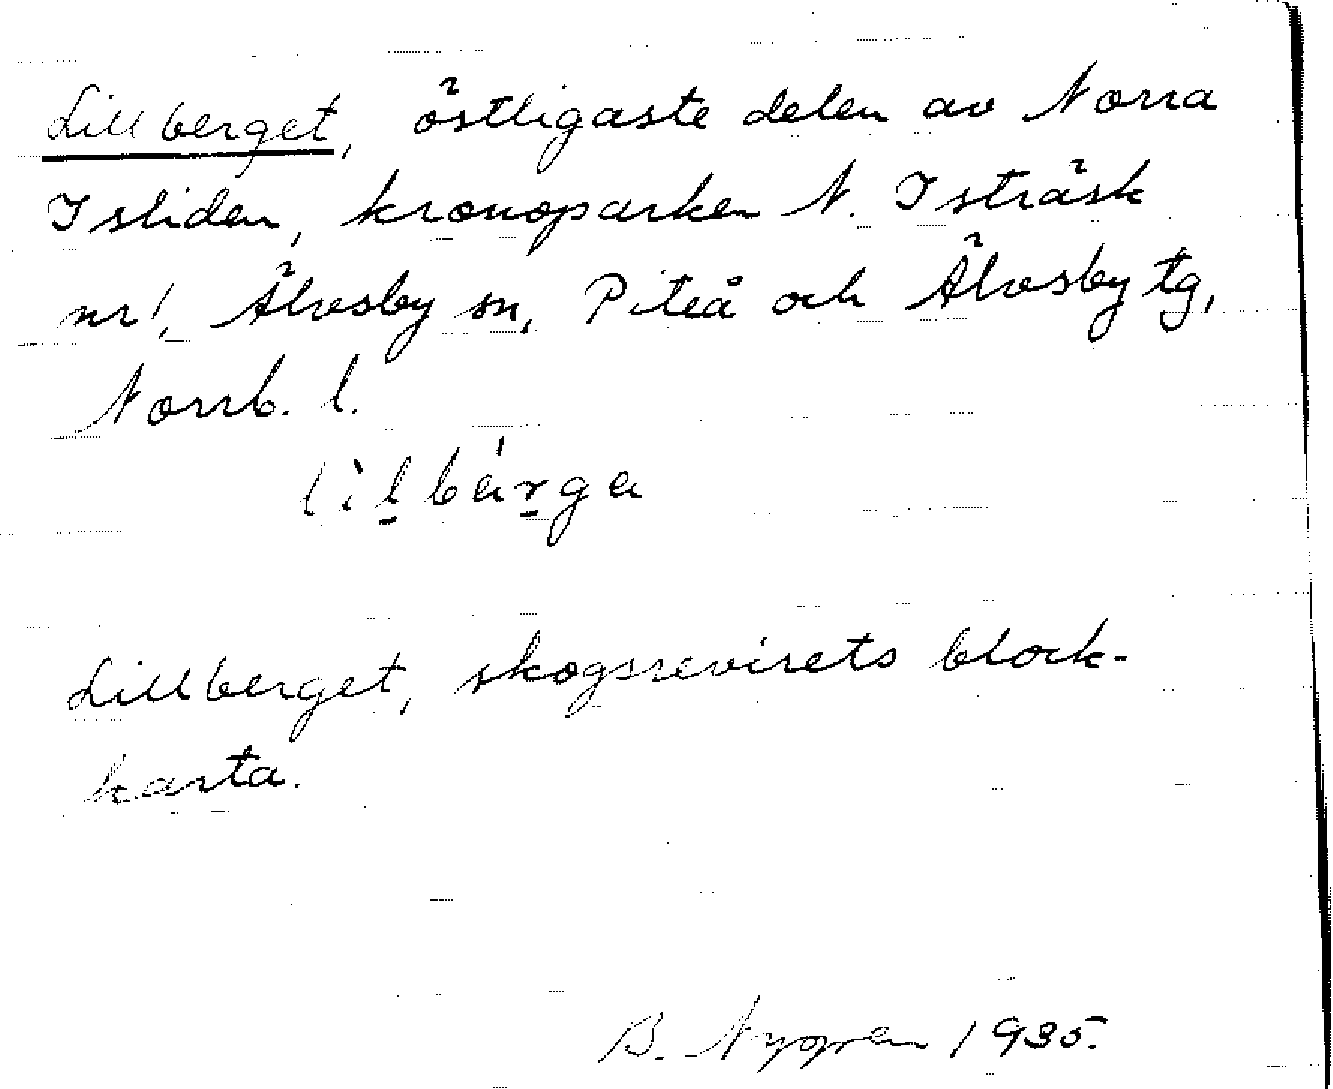 Lillberget, östligaste delen av Norra
Isliden, kronoparken N. Isträsk
nr 1, Älvsby sn, Piteå och Älvsby tg,
Norrb. l.
lìl̠bárg̠a
Lillberget, skogsrevirets block-
karta.
B. Nygren 1935.